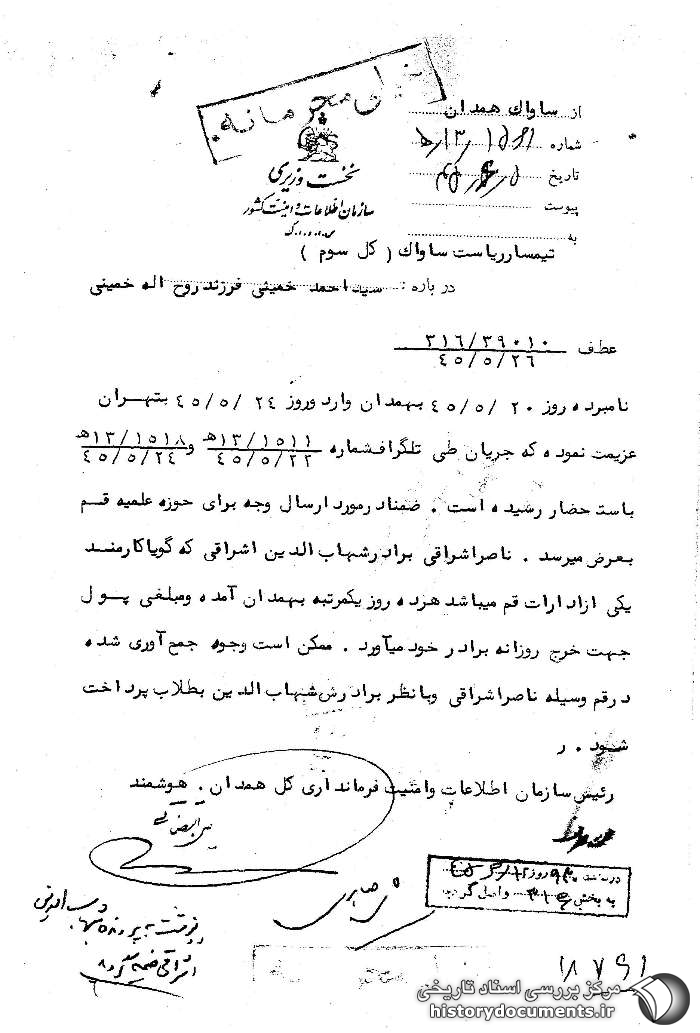 خیلی محرمانه
از ساواك همدان
شماره ۱۵۶۱ / ۱۳ / ه
تاریخ
پیوست
به
نخست وزیری
سازمان اطلاعات و امنیت کشور
س.ا.و.ا.ک
تیمسار ریاست ساواك ( کل سوم )
در باره : سید احمد خمینی فرزند روح اله خمینی
عطف ۳۱۶/۳۹۰۱۰
۴۵/۵/۲۶
نامبرده روز ۲۰ /۵/ ۴۵ بهمدان وارد وروز ۲۴ /۵/ ۴۵ بتهران
عزیمت نموده که جریان طی تلگرافشماره ۱۳/۱۵۱۱ه و ۱۳/۱۵۱۸ه
۴۵/۵/۲۲ ۴۵/۵/۲۴
باستحضار رسیده است . ضمنا در مورد ارسال وجه برای حوزه علمیه قم
بعرض میرسد . ناصر اشراقی برادر شهاب الدین اشراقی که گویا کارمند
یکی از ادارات قم میباشد هر ده روز یکمرتبه بهمدان آمده و مبلغی پول
جهت خرج روزانه برادر خود میآورد . ممکن است وجوه جمع آوری شده
در قم وسیله ناصر اشراقی و با نظر برادرش شهاب الدین بطلاب پرداخت
شود . ر
رئیس سازمان اطلاعات وامنیت فرمانداری کل همدان . هوشمند
روز
به بخش ۳۱۶ واصل گردید
صابری
اشراقی ضمیمه گردد
مرکز بررسی اسناد تاریخی
historydocuments.ir